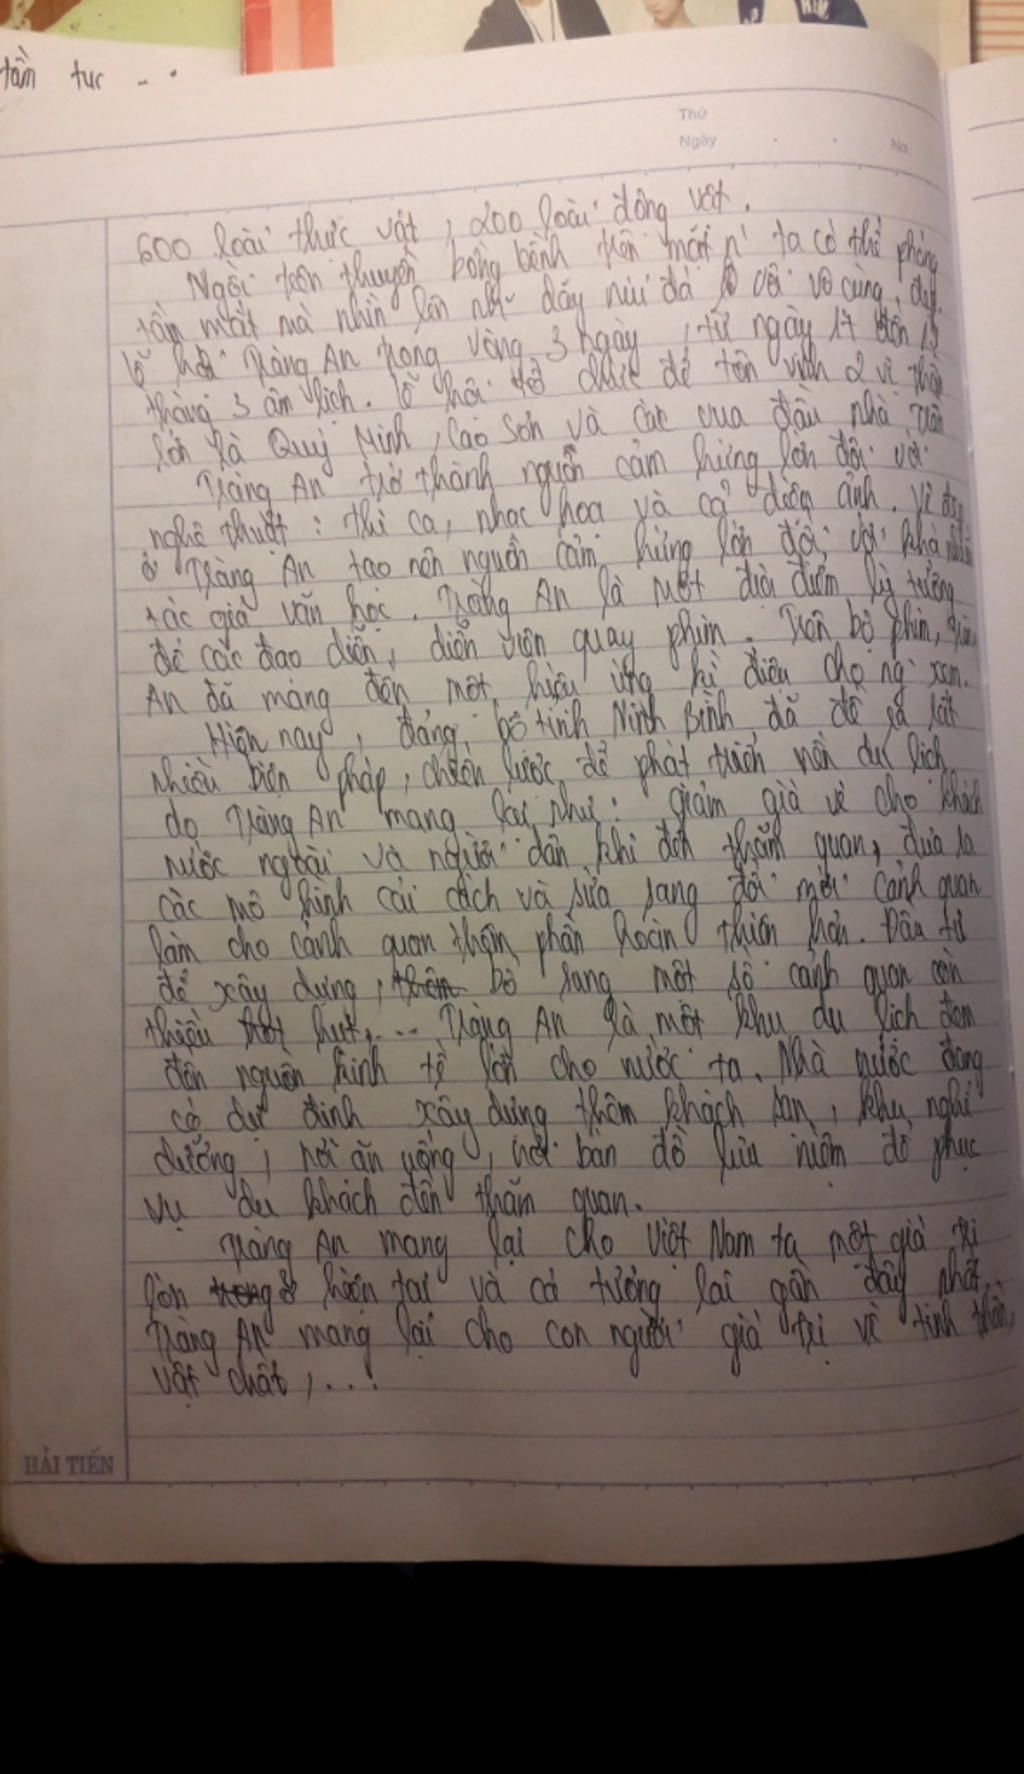 tầm tục ...
Thứ
Ngày
No.
600 loài thực vật, 200 loài động vật.
Ngồi trên thuyền bồng bềnh trên mặt n' ta có thể phóng
tầm mắt mà nhìn lên dãy núi đá vôi vô cùng đẹp.
lễ hội Tràng An trong vòng 3 ngày, từ ngày 17 đến 19
tháng 3 âm lịch. lễ hội tổ chức để tôn vinh 2 vị thần
lớn là Quý Minh, Cao Sơn và các vua đầu nhà Trần
Tràng An trở thành nguồn cảm hứng lớn đối với
nghệ thuật: thi ca, nhạc hoạ và cả điện ảnh. Vẻ đẹp
ở Tràng An tạo nên nguồn cảm hứng lớn đối với khá nhiều
tác giả văn học. Tràng An là một địa điểm lý tưởng
để các đạo diễn, diễn viên quay phim. Trên bộ phim, Tràng
An đã mang đến một hiệu ứng kì diệu cho ng' xem.
Hiện nay, đảng bộ tỉnh Ninh Bình đã đề ra rất
nhiều biện pháp, chiến lược để phát triển nền du lịch
do Tràng An mang lại như: giảm giá vé cho khách
nước ngoài và người dân khi đến thăm quan, đưa ra
các mô hình cải cách và sửa sang đổi mới cảnh quan
làm cho cảnh quan thêm phần hoàn thiện hơn. Đầu tư
để xây dựng, thêm bổ sang một số cảnh quan còn
thiếu hụt,... Tràng An là một khu du lịch đem
đến nguồn kinh tế lớn cho nước ta. Nhà nước đang
có dự định xây dựng thêm khách sạn, khu nghỉ
dưỡng, nơi ăn uống, nơi bán đồ lưu niệm để phục
vụ du khách đến thăm quan.
Tràng An mang lại cho Việt Nam ta một giá trị
lớn trong ở hiện tại và cả tương lai gần đây nhất.
Tràng An mang lại cho con người giá trị về tinh thần,
vật chất,...!
HẢI TIẾN